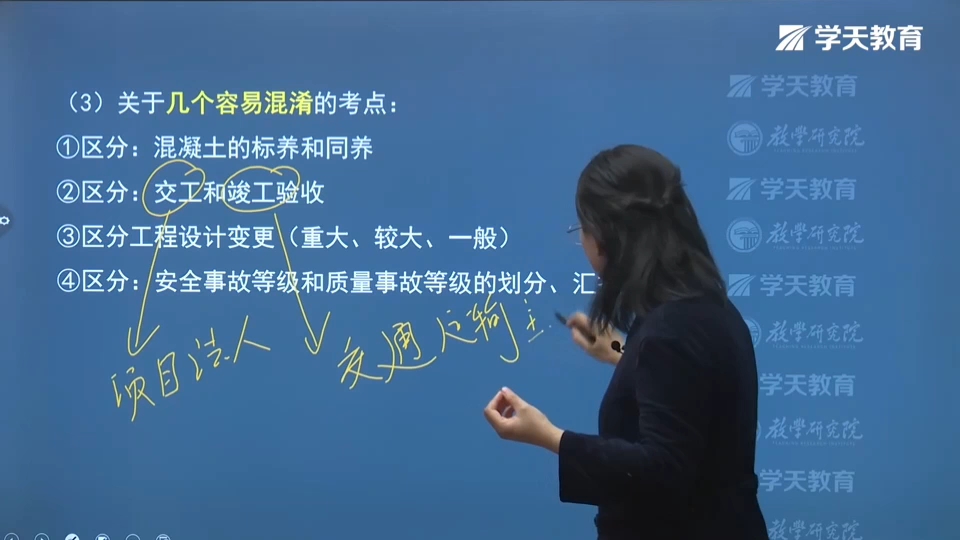 学天教育
（3）关于几个容易混淆的考点：
①区分：混凝土的标养和同养
②区分：交工和竣工验收
③区分工程设计变更（重大、较大、一般）
④区分：安全事故等级和质量事故等级的划分、汇
项目法人
交通运输主
学天教育
教学研究院
学天教育
教学研究院
学天教育
教学研究院
学天教育
教学研究院
学天教育
教学研究院